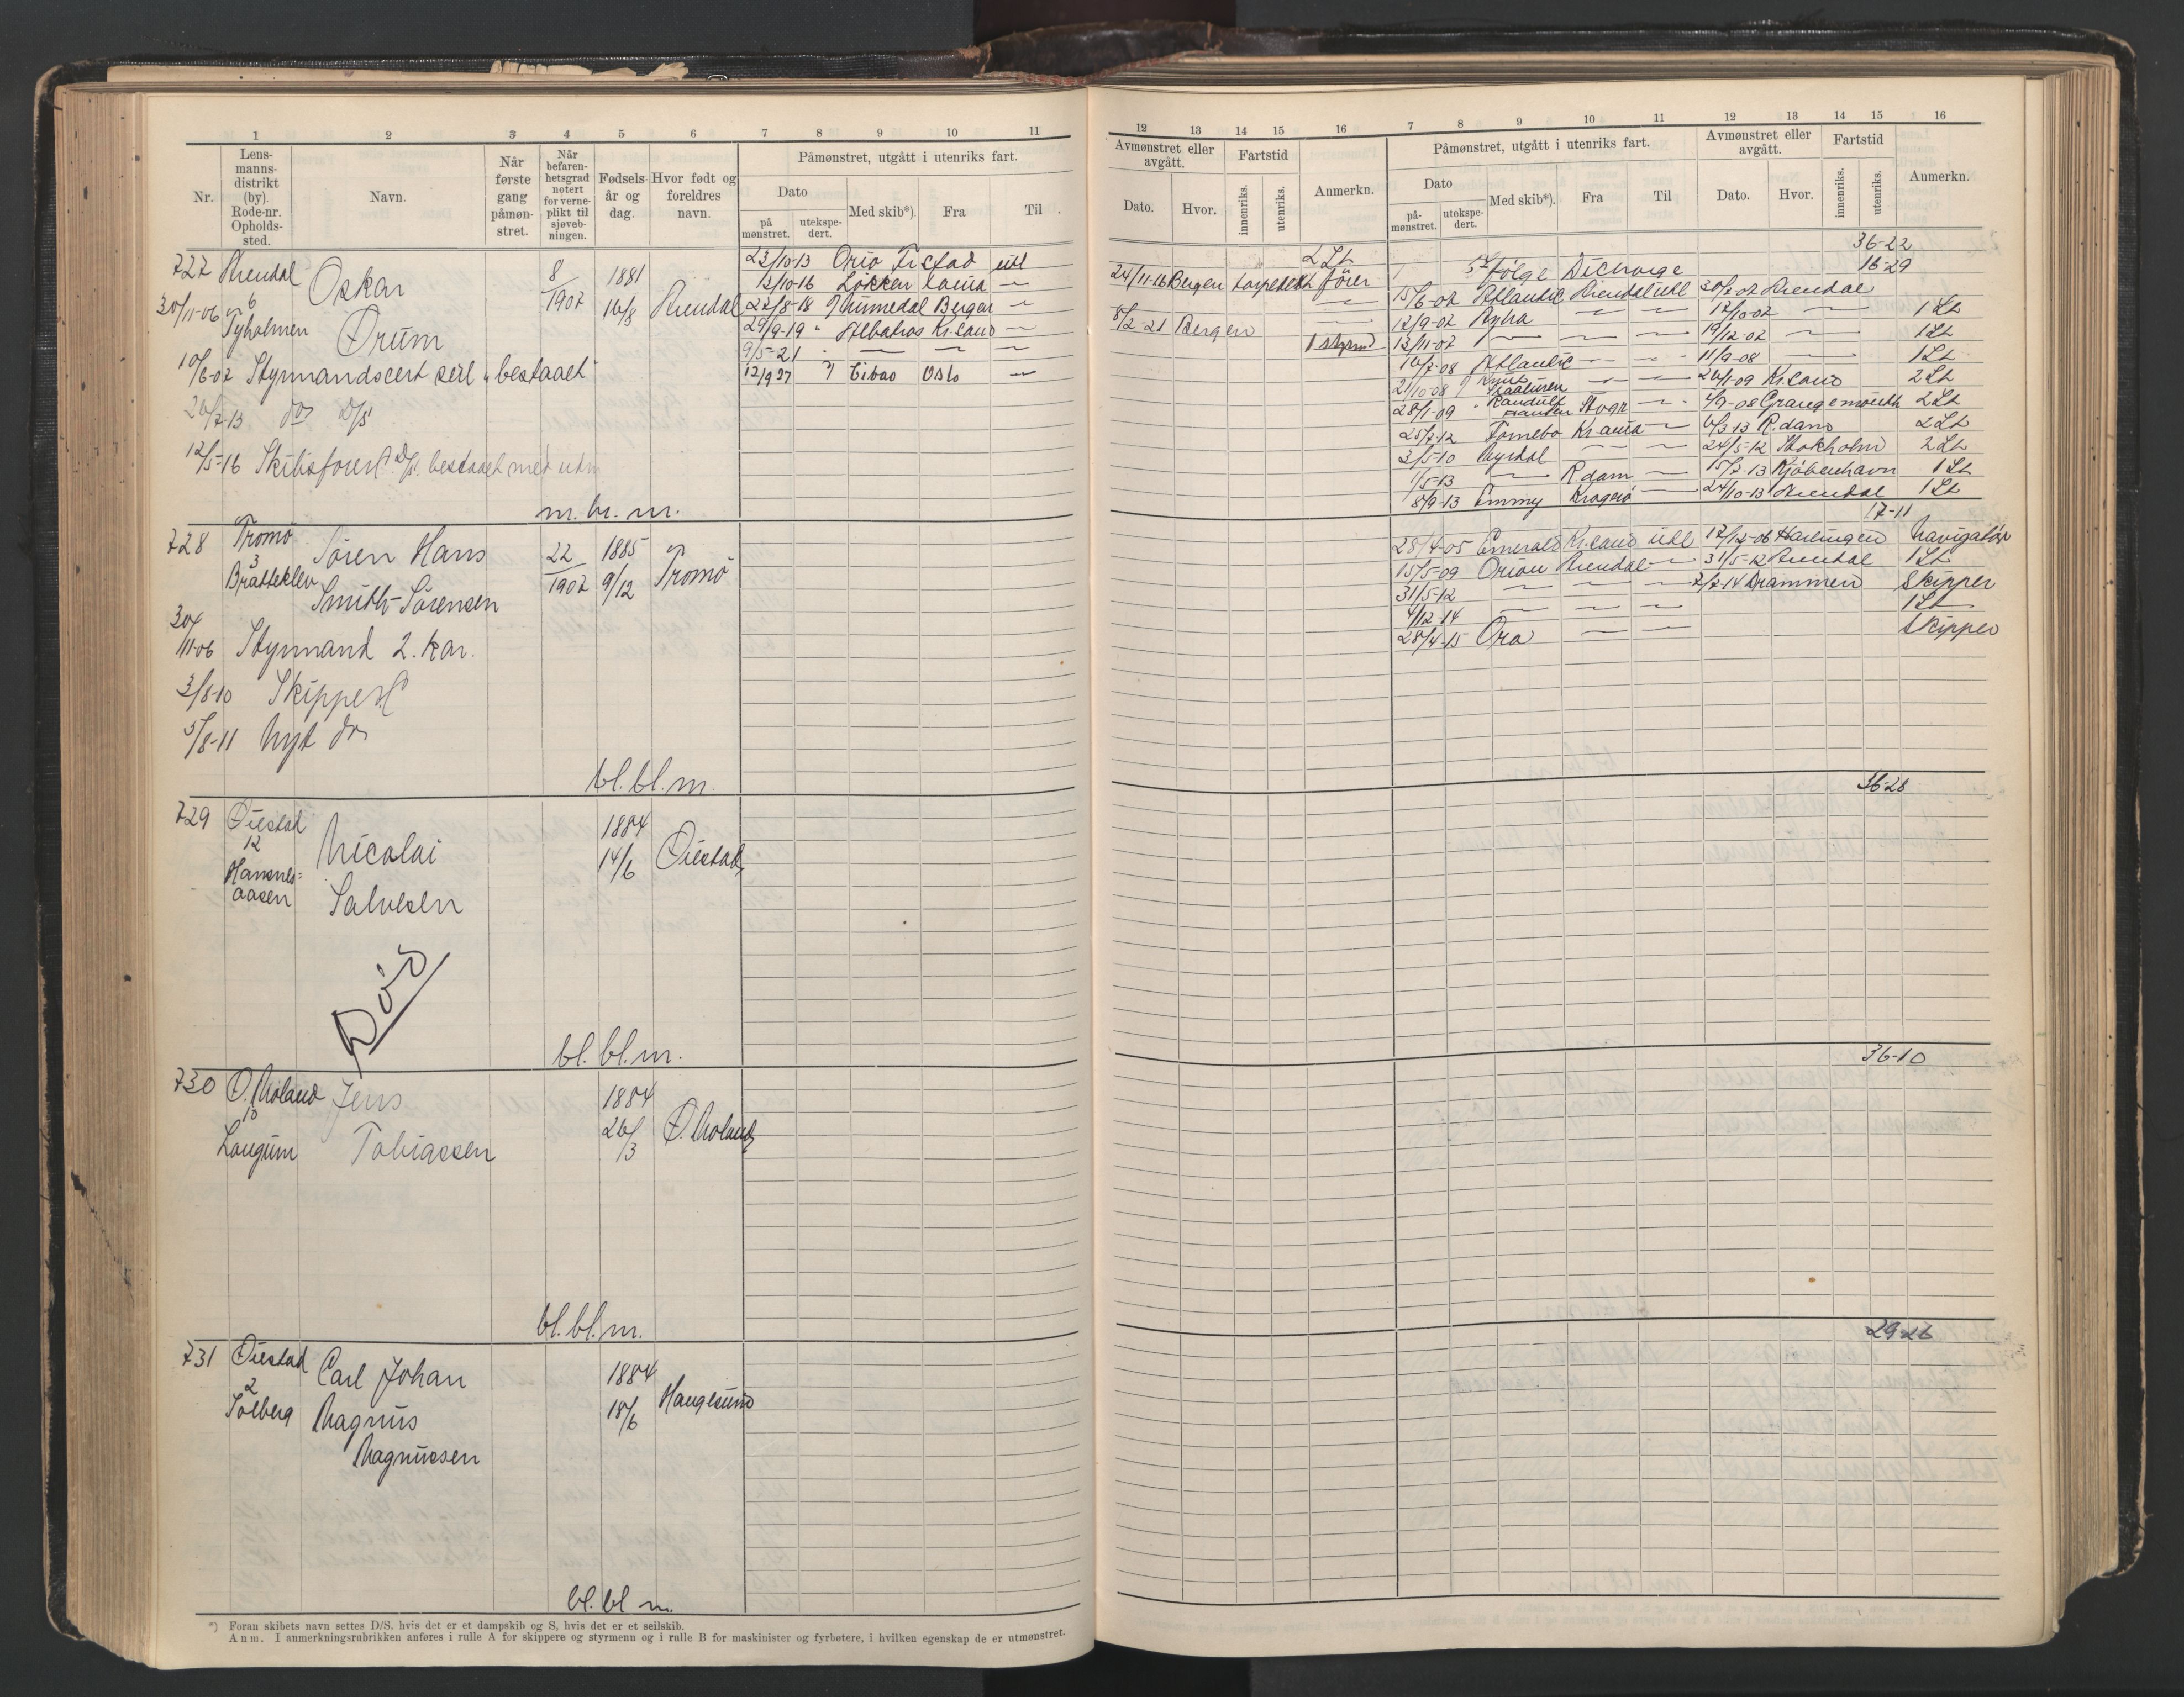 1 2 3 4 5 6 7 8 9 10 11
Nr.
Lens-
manns-
distrikt
(by).
Rode-nr.
Opholds-
sted.
Navn.
Når
første
gang
påmøn-
stret.
Når
befaren-
hetsgrad
notert
for verne-
plikt til
sjøveb-
ningen.
Fødsels-
år og
dag.
Hvor født og
foreldres
navn.
Påmønstret, utgått i utenriks fart.
Dato
på
mønstret.
utekspe-
dert.
Med skib*).
Fra
Til
727 Arendal Oskar 8/1907 1881 16/8 Arendal
30/11-06 6
Tyholmen Ørum
10/6-07 Styrmandscert seil "bestaaet"
26/7-13 do D/S
12/5-16 Skibsfører D/S. bestaaet med utm
m. br. m.
23/10-13 Orio Fistad utl
12/10-16 Løkken Lauia —
22/8-18 Numedal Bergen —
29/9-19 " Albatros Kr.sand —
9/5-21 — — —
12/9 27 Bibao Oslo —
728 Tromø Søren Hans 22/1907 1885 9/12 Tromø
3
Bratteklev Smith-Sørensen
30/11-06 Styrmand 2. kar.
3/8-10 Skipper
5/8-11 Nyt do
bl. bl. m.
729 Øiestad Nicolai 1884 14/6 Øiestad
12
Hamnes=
aasen Salvesen
Død
bl. bl. m.
730 Ø. Moland Jens 1884 26/3 Ø. Moland
10
Longum Tobiassen
bl. bl. m.
731 Øiestad Carl Johan 1884 18/6 Haugesund
2
Solberg Magnus
Magnussen
bl. bl m.
*) Foran skibets navn settes D/S, hvis det er et dampskib og S, hvis det er et seilskib.
Anm. I anmerkningsrubrikken anføres i rulle A for skippere og styrmenn og i rulle B for maskinister og fyrbøtere, i hvilken egenskap de er utmønstret.
12 13 14 15 16 7 8 9 10 11 12 13 14 15 16
Avmønstret eller
avgått.
Dato.
Hvor.
Fartstid
innenriks.
utenriks.
Anmerkn.
Påmønstret, utgått i utenriks fart.
Dato
på-
mønstret.
utekspe-
dert.
Med skib*).
Fra
Til
Avmønstret eller
avgått.
Dato.
Hvor.
Fartstid
innenriks.
utenriks.
Anmerkn.
2 St
24/11-16 Bergen torpedert fører
8/2-21 Bergen
1 styrmd
36-22
ifølge Discharge 16-29
15/6-07 Atlantic Arendal utl 30/7-07 Arendal
12/9-07 Ayha — — 17/10-07 — 1 St
13/11-07 — — — 19/12-07 — 1 St
16/7-08 Atlantic — — 11/9-08 — 1 St
21/10-08 Knut Skaaluren — — 26/1-09 Kr.sand 2 St
28/1-09 Randulf Hansen — 4/9-08 Grangemouth 2 St
25/7-12 Tomebo Kr.ania — 6/3 13 R.dam 2 St
3/5-10 Nyrdal — — 24/5-12 Stokholm 2 St
1/5-13 — R.dam — 15/7-13 Kjøbenhavn 1 St
8/9-13 Emmy Kragerø — 24/10-13 Arendal 1 St
17-11
28/4-05 Emerald Kr.sand utl 17/12-06 Harlingen Navigatør
15/5-09 Orion Arendal — 31/5-12 Arendal 1 St
31/5-12 — — — 7/7-14 Drammen Skipper
4/12-14 — — — 1 St
28/4-15 Ora — — Skipper
36-28
36-10
29-26